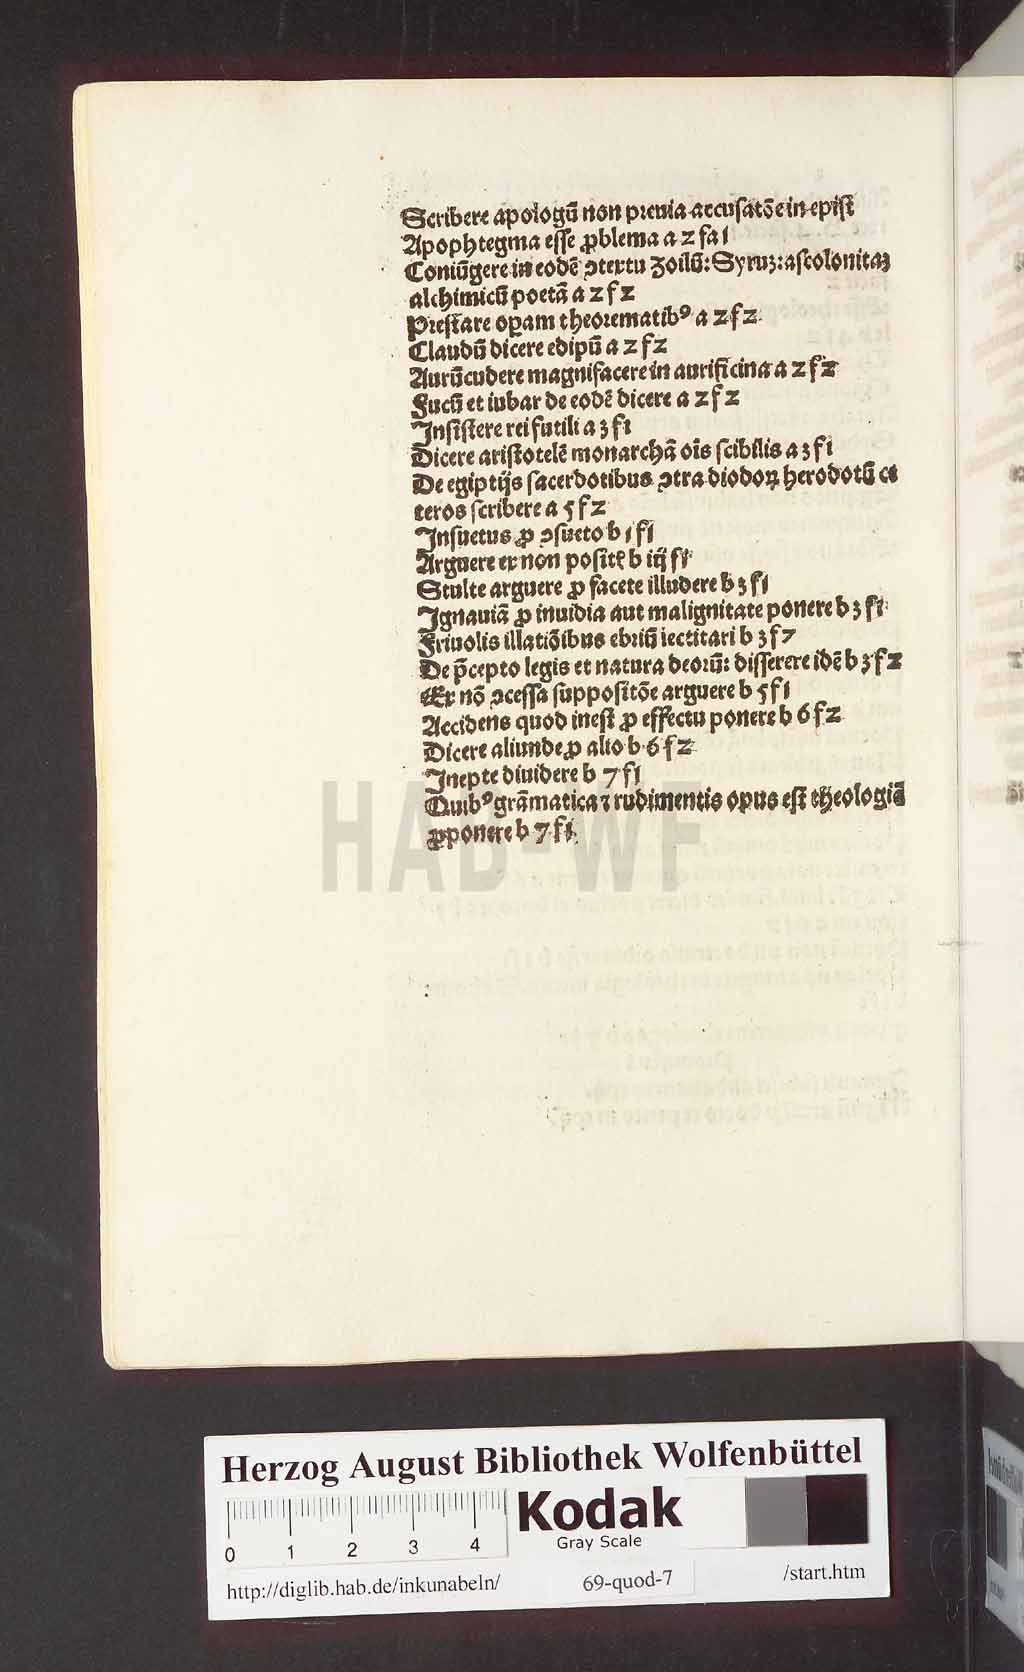 Scribere apologū non preuia accusatōe in epist
Apophtegma esse ꝓblema a 2 fa 1
Coniūgere in eodē ↄtextu zoilū: Syruꝫ: ascolonitaꝫ
alchimicū poetā a 2 f 2
Prestare operam theorematibꝰ a 2 f 2
Claudū dicere edipū a 2 f 2
Aurūcudere magnifacere in aurificina a 2 f 2
Fucū et iubar de eodē dicere a 2 f 2
Insistere rei futili a 3 f 1
Dicere aristotelē monarchā oīs scibilis a 3 f 1
De egiptijs sacerdotibus ↄtra diodoꝝ herodotū ce
teros scribere a 5 f 2
Insuetus ꝓ ↄsueto b 1 f 1
Arguere ex non positꝭ b iij f 1
Stulte arguere ꝓ facete illudere b 3 f 1
Ignauiā ꝓ inuidia aut malignitate ponere b 3 f 1
Friuolis illatiōibus ebriū iectitari b 3 f 2
De p̄cepto legis et natura deorū: disserere idē b 3 f 2
Ex nō ↄcessa suppositōe arguere b 5 f 1
Accidens quod inest ꝓ effectu ponere b 6 f 2
Dicere aliunde ꝓ alio b 6 f 2
Inepte diuidere b 7 f 1
Quibꝰ grāmatica ⁊ rudimentis opus est theologiā
ꝓponere b 7 f 1
HAB-WF
Herzog August Bibliothek Wolfenbüttel
Kodak
Gray Scale
0 1 2 3 4
http://diglib.hab.de/inkunabeln/ 69-quod-7 /start.htm